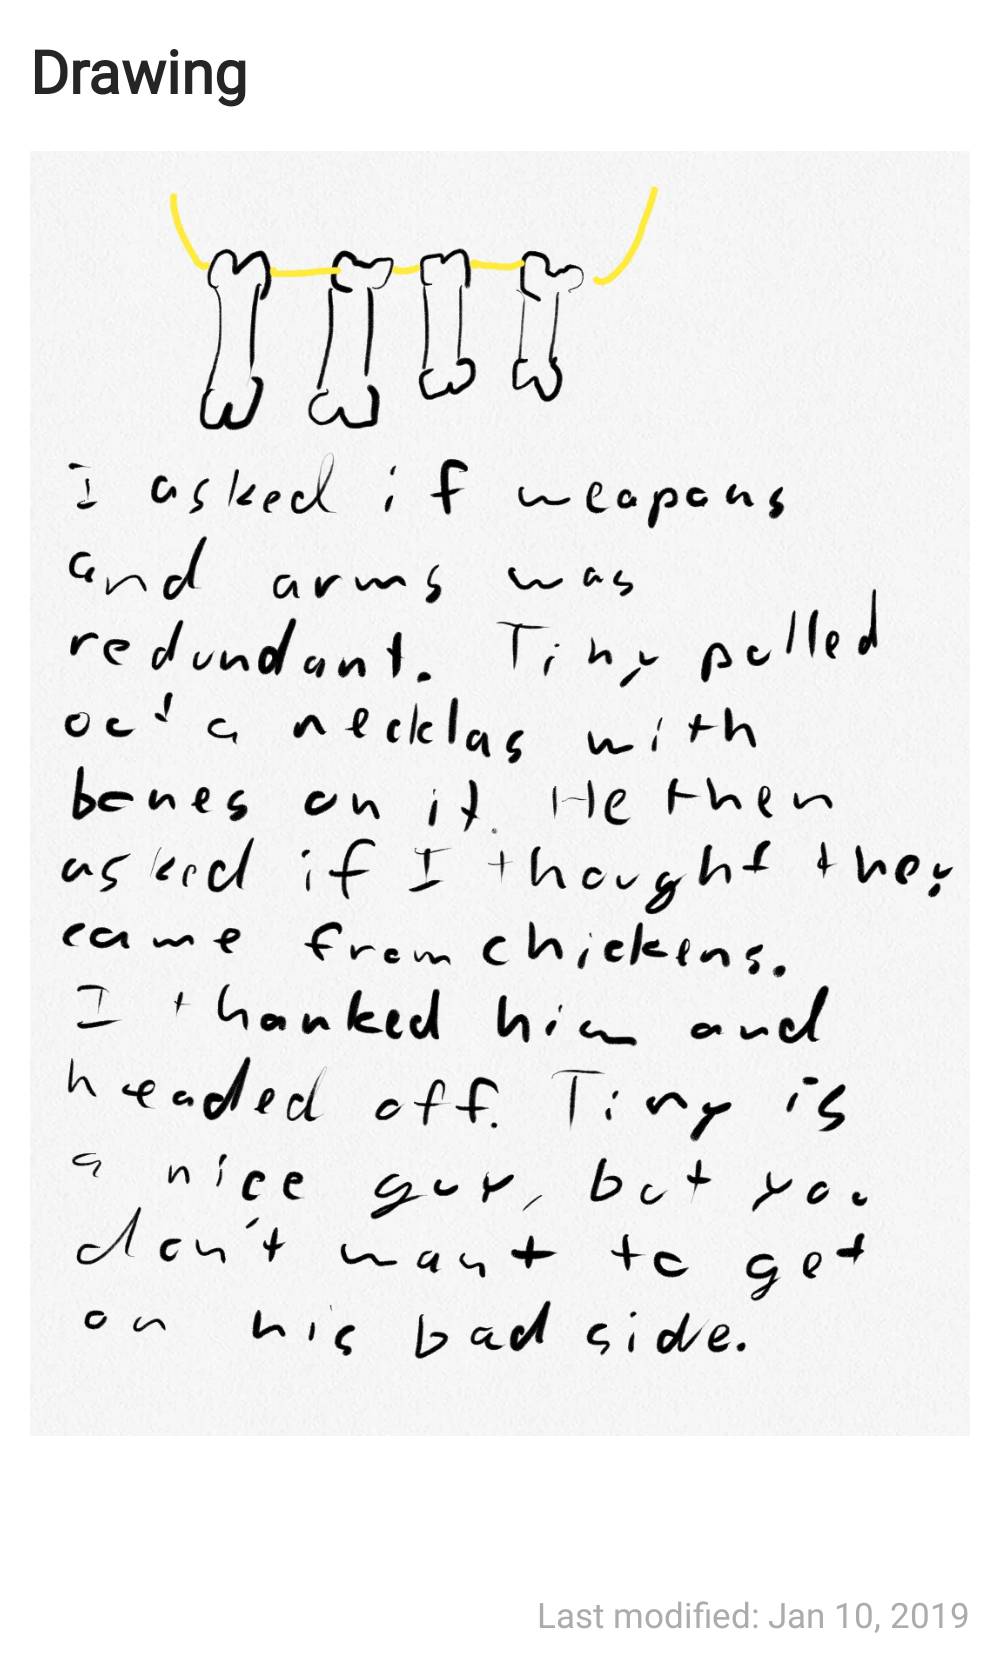 Drawing
I asked if weapons
and arms was
redundant. Tiny pulled
out a necklas with
bones on it. He then
asked if I thought they
came from chickens.
I thanked him and
headed off. Tiny is
a nice guy, but you
don't want to get
on his bad side.
Last modified: Jan 10, 2019